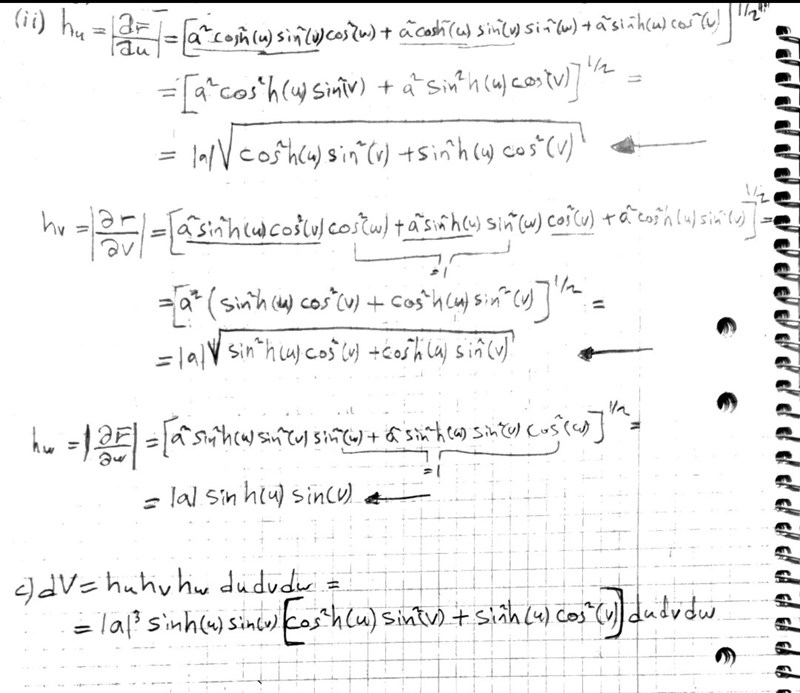 (ii) hᵤ = |∂r̅/∂u| = [a² cosh²(u) sin²(v) cos²(w) + a² cosh²(u) sin²(v) sin²(w) + a² sinh²(u) cos²(v)]^1/2 =
= [a² cos²h(u) sin²(v) + a² sin²h(u) cos²(v)]^1/2 =
= |a|√(cos²h(u) sin²(v) + sin²h(u) cos²(v)) ←
hv = |∂r/∂v| = [a² sin²h(u) cos²(v) cos²(w) + a² sin²h(u) sin²(w) cos²(v) + a² cos²h(u) sin²(v)]^1/2 =
=1
= [a² (sin²h(u) cos²(v) + cos²h(u) sin²(v))]^1/2 =
= |a|√(sin²h(u) cos²(v) + cos²h(u) sin²(v)) ←
hw = |∂r̅/∂w| = [a² sin²h(u) sin²(v) sin²(w) + a² sin²h(u) sin²(v) cos²(w)]^1/2 =
=1
= |a| sinh(u) sin(v) ←
c) dV = hu hv hw du dv dw =
= |a|³ sinh(u) sin(v) [cos²h(u) sin²(v) + sin²h(u) cos²(v)] du dv dw